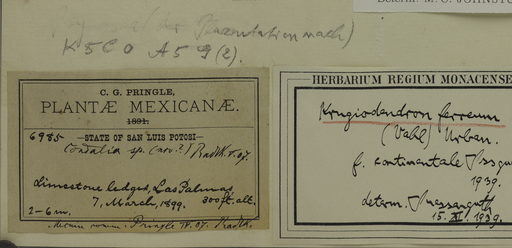 Determ. M. C. JOHNSTON
der Placentation nach)
K5 C0 A5 G(2).
C. G. PRINGLE,
PLANTÆ MEXICANÆ.
1891.
6985 —STATE OF SAN LUIS POTOSI—
Condalia sp. (nov.?) Radlk. V. 07.
Limestone ledges, Las Palmas
7, March, 1899. 300 ft. alt.
2-6 m.
Pringle IV. 07. Radlk.
HERBARIUM REGIUM MONACENSE
Krugiodendron ferreum
(Vahl) Urban.
f. continentale Sssgu
1939.
determ. Suessenguth
15. XI. 1939.